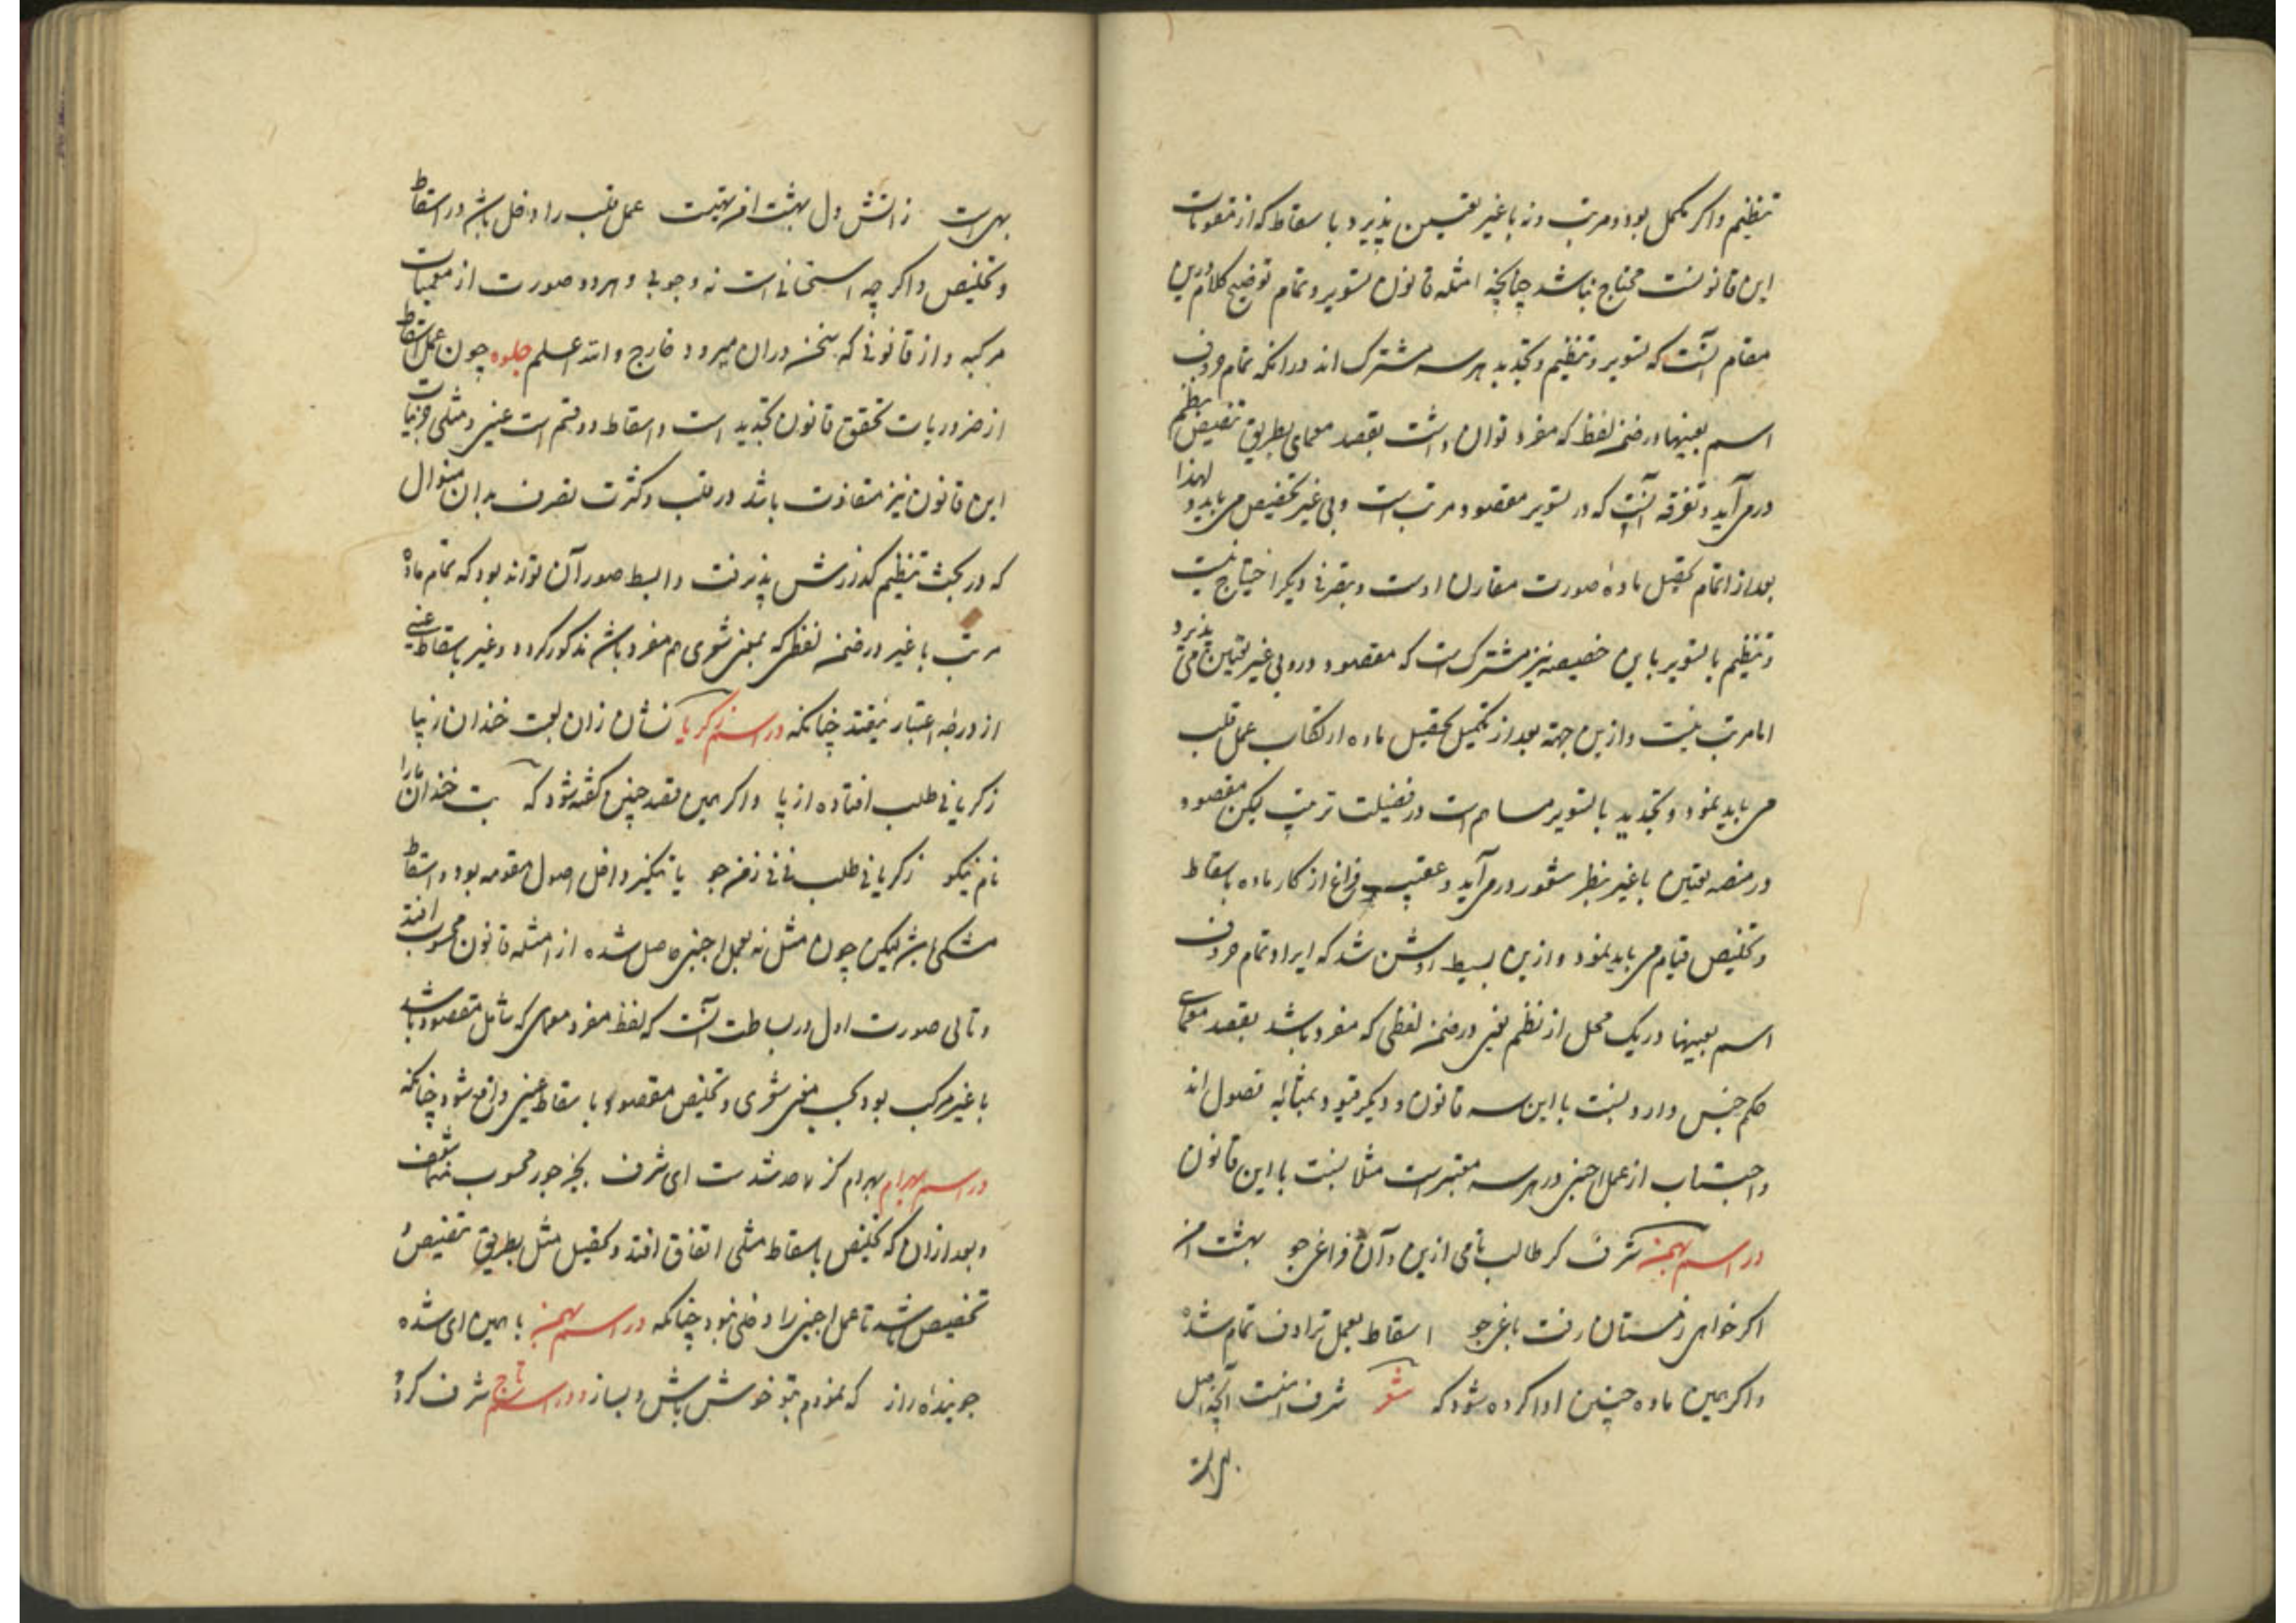 تنظیم و اگر مکمل بود و مرتب و نه با غیر تعیین پذیرد با سقاط که از مقومات
این قانونست محتاج نباشد چنانچه امثله قانون تسویر و تمام توضیح کلام درین
مقام آنست که تسویر و تنظیم و تجدید هر سه مشترک اند در آنکه تمام حروف
اسم بعینها در ضمن لفظ که مفرد توان داشت بقصد معمای بطریق تنصیص بنظم
در می آید و تفرقه آنست که در تسویر مقصود مرتب است و بی غیر تخصیص می یابد و لهذا
بعد از اتمام تحصیل ماده صورت مقارن اوست و بتصرفی دیگر احتیاج نیست
و تنظیم با تسویر باین خصیصه نیز مشترک است که مقصود در و بی غیر تعیین می پذیرد
اما مرتب نیست و ازین جهة بعد از تکمیل تحصیل ماده ارتکاب عمل قلب
می باید نمود و تجدید با تسویر مساهم است در فضیلت ترتیب لیکن مقصود
در منصه تعیین با غیر بنظر شعور در می آید و عقیب فراغ از کار ماده باسقاط
و تخلیص قیام می باید نمود و ازین بسیط روشن شد که ایراد تمام حروف
اسم بعینها در یک محل از نظم یعنی در ضمن لفظی که مفرد باشد بقصد معمای
حکم جنس دارد نسبت با این سه قانون و دیگر قیود بمثابه فصول اند
و اجتناب از عمل اجنبی در هر سه معتبر است مثلا نسبت با این قانون
در اسم بهمن شرف کر طالب نامی ازین و آن فراغی جو بهشت امن
اگر خواهی زمستان رفت باغی جو اسقاط بعمل ترادف تمام شده
و اگر همین ماده چنین ادا کرده شود که شعر شرف امنیت آنچه اصل
بهر است
بهر است ز آتش دل بهشت امن بهتست عمل قلب را دخل باشد در اسقاط
و تخلیص و اگر چه استحسانی است نه وجوبی و هر دو صورت از معمیات
مرکبه و از قانونی که سخن در ان میرود خارج والله اعلم جلوه چون عمل اسقاط
از ضروریات تحقق قانون تجدید است و اسقاط دو قسم است عینی و مثلی جزئیات
این قانون نیز متفاوت باشد در قلت و کثرت تصرف بدان منوال
که در بحث تنظیم گذارش پذیرفت و ابسط صور آن تواند بود که تمام ماده
مرتب با غیر در ضمن لفظی که بمعنی شعری هم مفرد باشد مذکور گردد و غیر باسقاط عینی
از درجه اعتبار بیفتد چنانکه در اسم زکریا نشان زان لعبت خندان زیبا
زکریانی طلب افتاده از پا و اگر همین قصد چنین گفته شود که بت خندان ما را
نام نیکو زکریانی طلب نی نی زمن جو یا تنکیر داخل اصول مقومه بود و اسقاط
مثلی باشد لیکن چون مثل نه بعمل اجنبی حاصل شده از امثله قانون محسوب افتد
و تالی صورت اول در بساطت آنست که لفظ مفرد معمای که شامل مقصود باشد
با غیر مرکب بود بحسب معنی شعری و تخلیص مقصود باسقاط عینی واقع شود چنانکه
در اسم بهرام بهرام کز شدست ای شرف بجز جور محسوب
و بعد از ان که تخلیص باسقاط مثلی اتفاق افتد و تحصیل مثل بطریق تنصیص و
تخصیص باشد تا عمل اجنبی را دخلی نبود چنانکه در اسم بهمن با همین ای شده
جوینده راز که نمودم بتو خوش باش و بساز و در اسم تاج شرف کرد